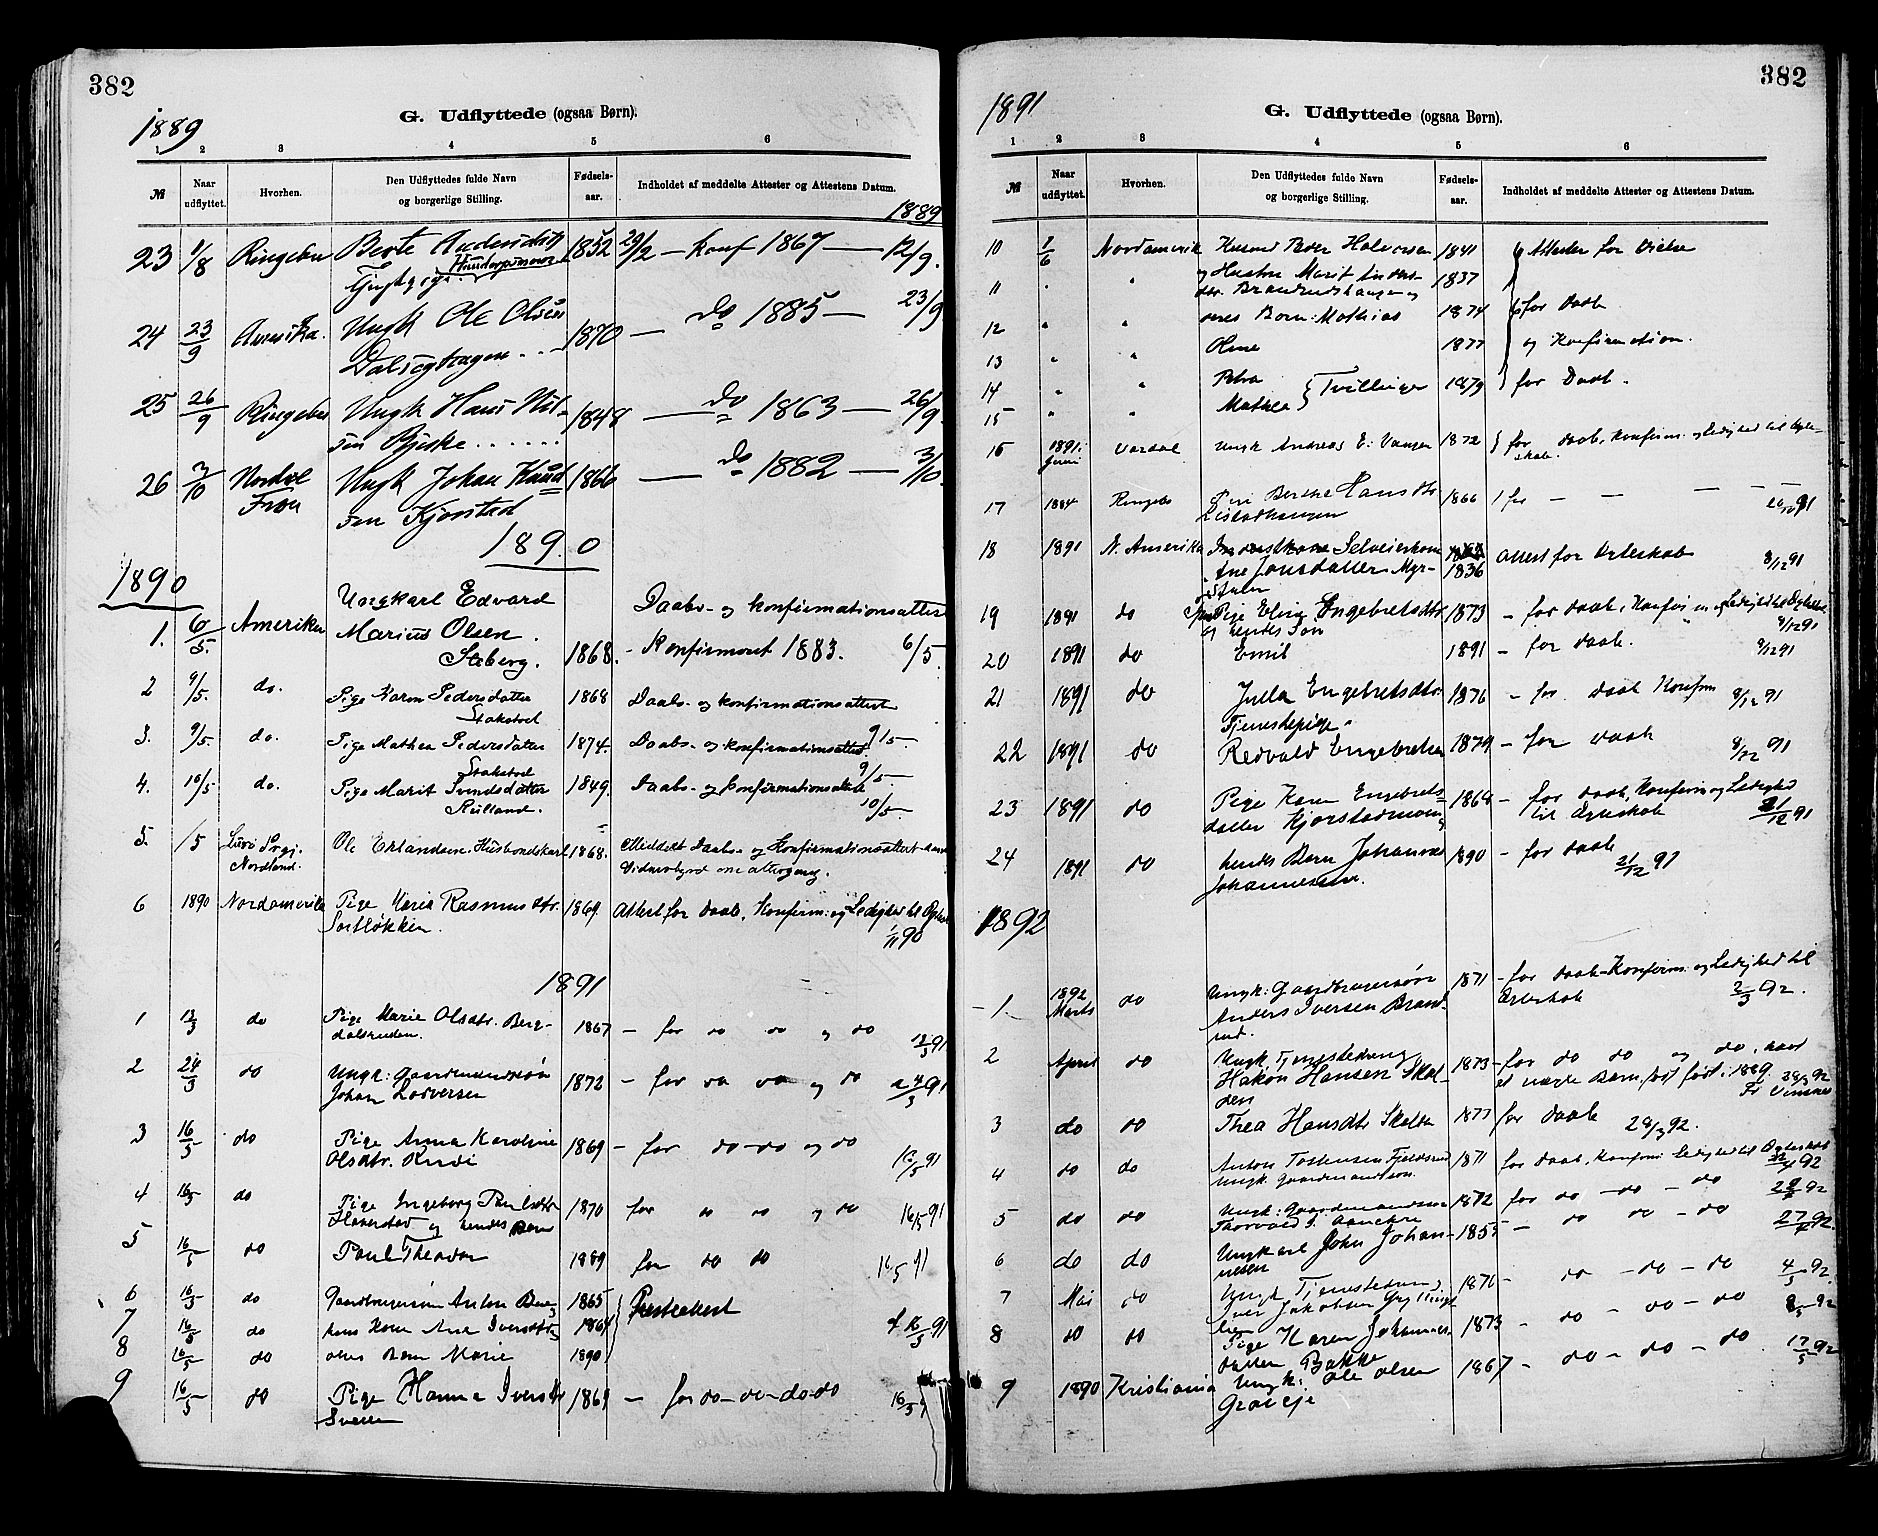 382
G. Udflyttede (ogsaa Børn).
1889
1 2 3 4 5 6
№ Naar udflyttet. Hvorhen. Den Udflyttedes fulde Navn og borgerlige Stilling. Fødsels-aar. Indholdet af meddelte Attester og Attestens Datum.
1889
23 1/8 Ringebu Berte 1852 29/2 — Konf 1867 — 12/9.
24 23/9 Amerika. Ungk Ole Olsen 1870 — do 1885 — 23/9
25 26/9 Ringebu Ungk Hans Nil- 1848 — do 1863 — 26/9.
sen
26 2/10 Nordre Ungk Johan Knud 1866 — do 1882 — 3/10.
Fron sen Kjorstad
1890
1890
Ungkarl Edvard Daabs- og konfirmationsattest
1. 6/5. Amerika Marius Olsen
Steberg. 1868. - Konfirmeret 1883. 6/5.
2 9/5. do. Pige Karen Pedersdatter 1868 Daabs- og konfirmationsattest
Stokstad 9/5-
3. 9/5. do. Pige Mathea Pedersdatter 1874. Daabs- og konfirmationsattest
Stokstad 9/5-
4. 10/5 do. Pige Marit Svendsdatter 1849. Daabs- og konfirmationsattest
Rulland. 10/5-
5. /5 Lurø Prgj. Ole Erlandsen Husbondskarl 1868. Meddelt Daabs- og Konfirmationsattest samt
Nordland. Vidnesbyrd om altergang.
6 1890 Nordamerika Pige Maria Rasmusdtr. 1869. Attest for Daab, Konfirm: og Ledighed til Egtesk
Sortløkken. 1/11 90
1891
1 13/3 do Pige Marie Olsdtr. Berg- 1867 — for do do og do
dalsruden. 13/3 91
2 24/3 do Ungk: Gaardmandssøn 1872 — for do do og do 24/3 91
Johan Lodversen
3 16/5 do Pige Anna Karoline 1869 — for do-do og do
Olsdtr. Rudi 16/5 91
4 16/5 do Pige Ingeborg Paulsdtr 1870 for do do og do 16/5 91
og hendes Barn
5 16/5 do Paul Theodor 1889 for do do 16/5 91
6 16/5 do Gaardbrugersøn Anton 1865 Presteattest
7 16/5 do hans Kone Ane Iversdtr 1864 16/5 91
8 16/5 do deres Barn Marie 1890
9 16/5 do Pige Hanna Iversdtr 1869 — for do-do-do-do 16/5 9
382
G. Udflyttede (ogsaa Børn).
1891
1 2 3 4 5 6
№ Naar udflyttet. Hvorhen. Den Udflyttedes fulde Navn og borgerlige Stilling. Fødsels-aar. Indholdet af meddelte Attester og Attestens Datum.
10 7/6 Nordamerik Husmd Peder Halvorsen 1841 Attester for Vielse
11 " " og Hustru Marit Anders- 1837
dtr. Brandrudshaugen og
12 " " deres Børn: Mathias 1874 for Daab
13 " " Oline 1877 og Konfirmation.
14 " " Petra Tvillinger 1879 for Daab.
15 " " Mathea
16 1891 Vardal Ungk Andreas E. 1872 for Daab, Konfirm: og Ledighed til Egte-
Juni skab.
17 1884 Ringebu Pige Berthe Hansdtr 1866 1 for — — — — —
Listadhaugen 20/10 91
18 1891 N. Amerika Selveierkone Attest for Egteskab 8/12 91
Ane Jonsdatter Myr- 1836
19 1891 do Pige Elina Engebretsdtr 1873 — for Daab, Konfirm og Ledighed til Egtesk.
og hendes Søn 8/12 91
20 1891 do Emil 1891 — for Daab. 9/12 91
21 1891 do Julia Engebretsdtr. 1876 — for Daab Konfirm 8/12 91
Tjenestepige.
22 1891 do Redvald Engebretsen 1879 — for Daab 8/12 91
23 1891 do Pige Karen Engebrets 1868 — for Daab, Konfirm og Ledighed
datter Kjorstadmoen og til Egteskab 21/12 91
24 1891 do hendes Barn Johannes 1890 — for Daab 21/12 91
Johannessen.
1892
1. 1892 do Ungk: Gaardbrugersøn 1871 — for Daab-Konfirm: og Ledighed til
Marts Anders Iversen Brand- Egteskab 2/3 92.
rud.
2 April do Ungk. Tjenestedreng 1873 — for do do og do, havt
Hakon Hansen Skal- et uægte Barn, født 1889. 28/3 92
den
3 do do Thea Hansdtr Skalden 1877 for Daab 28/3 92.
4 do do Anton Tostensen Fjeldsrud 1871 for Daab, Konfirm: Ledighed til Egteskab
Ungk. Gaardmandssøn. 92
5 do do Ungk: Gaardmandssøn 1872 for do — do — do 92
6 do do Ungkarl John Johan- 1855 — do do — do 27/4 92.
nesen
7 Mai do Ungk Tjenestedreng 1871 — do — do — do 4/5 92.
Iver Jakobsen
8 do do Pige Karen Johannes- 1873 — do — do — do 92
datter Bakke
9 1890 Kristiania Ungk: Ole Olsen 1867 — do — do — do 17/5 92